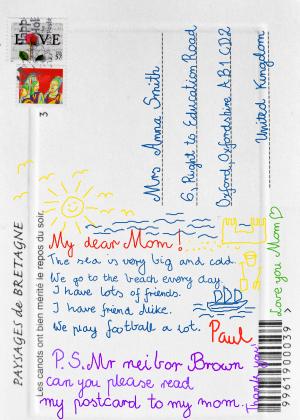 LOVE
3
Mrs Anna Smith
6, Right to Education Road
Oxford, Oxfordshire AB1 6D2
United Kingdom
My dear Mom!
The sea is very big and cold.
We go to the beach every day.
I have lots of friends.
I have friend Mike.
We play football a lot.
Paul
I love you Mom
P.S. Mr neibor Brown
can you please read
my postcard to my mom.
Thank you!
PAYSAGES de BRETAGNE
Les canots ont bien mérité le repos du soir.
9961900039 >